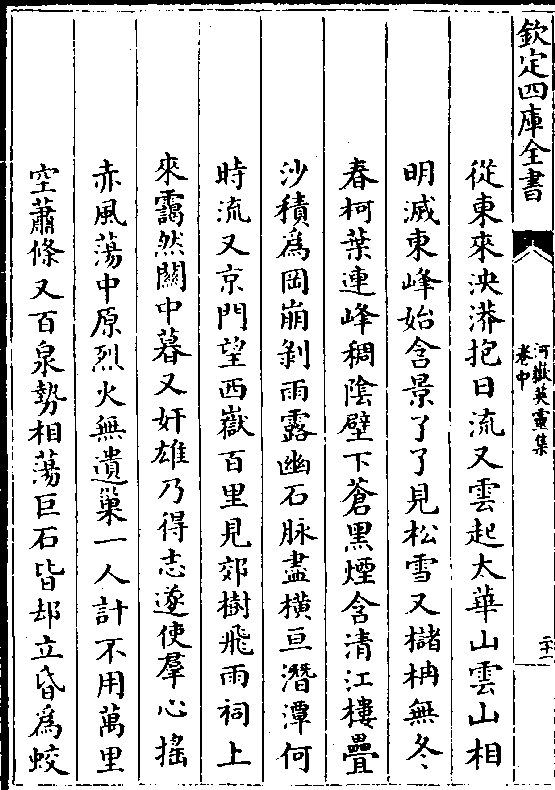 欽定四庫全書
河嶽英靈集
卷中
二十一
從東來泱漭抱日流又雲起太華山雲山相
明滅東峰始含景了了見松雪又櫧柟無冬
春柯葉連峰稠陰壁下蒼黑煙含清江樓疊
沙積為岡崩剝雨露幽石脉盡橫亘潛潭何
時流又京門望西嶽百里見郊樹飛雨祠上
來靄然關中暮又奸雄乃得志遂使羣心搖
赤風蕩中原烈火無遺巢一人計不用萬里
空蕭條又百泉勢相蕩巨石皆却立昏為蛟